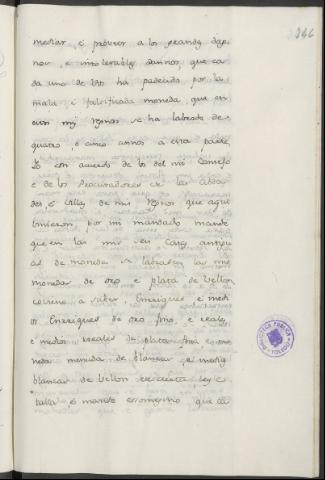 346
mediar, é proveer a los grandes dap-
nos, e intolerables dannos, que ca
da uno de vos ha padecido por la
mala, é falsificada moneda, que en
estos mis regnos se ha labrado de
quatro, é cinco annos a esta parte,
Yo con acuerdo de los del mi Consejo
e de los Procuradores de las cibda-
des, é villas de mis regnos que aqui
vinieron, por mi mandado mandé
que en las mis seis casas antiguas
de moneda se labrasen las mis
monedas de oro e plata de vellon
a saber, Enriques é medi
os Enriques de oro fino, e reales,
e medios reales de plata fina é mo
neda menuda de blancas, é medias
blancas de vellon de cierta ley é
talla é mandé eso mesmo que
BIBLIOTECA PUBLICA TOLEDO